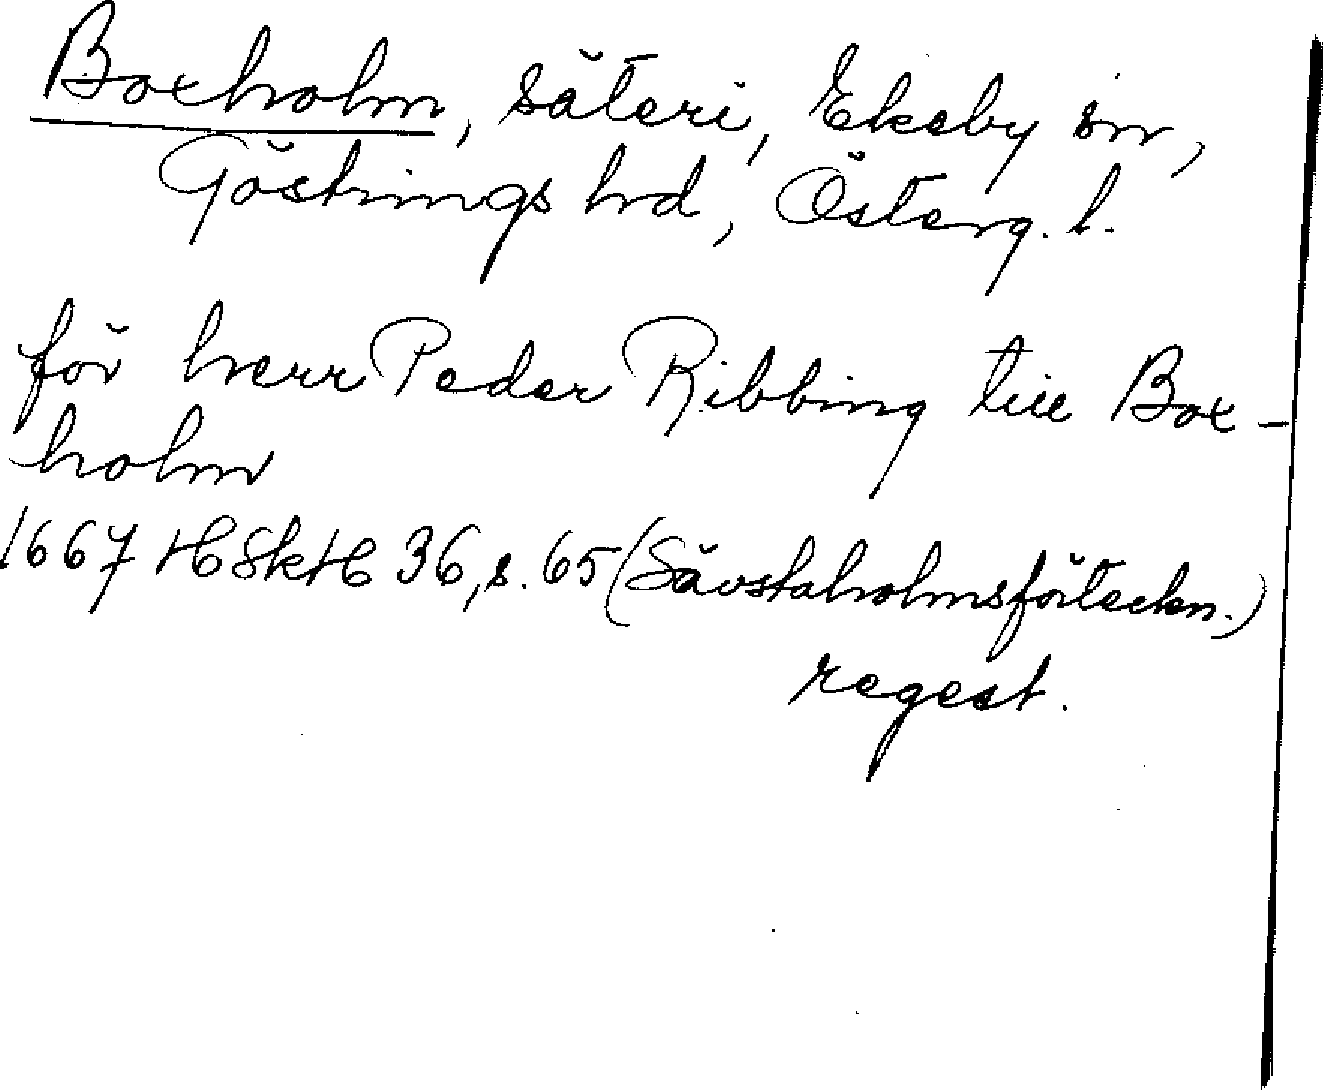 Boxholm, säteri, Ekeby sn,
Göstrings hd, Österg. l.
för herr Peder Ribbing till Box-
holm
1667 HSkH 36, s. 65 (Sävstaholmsförteckn.)
regest.